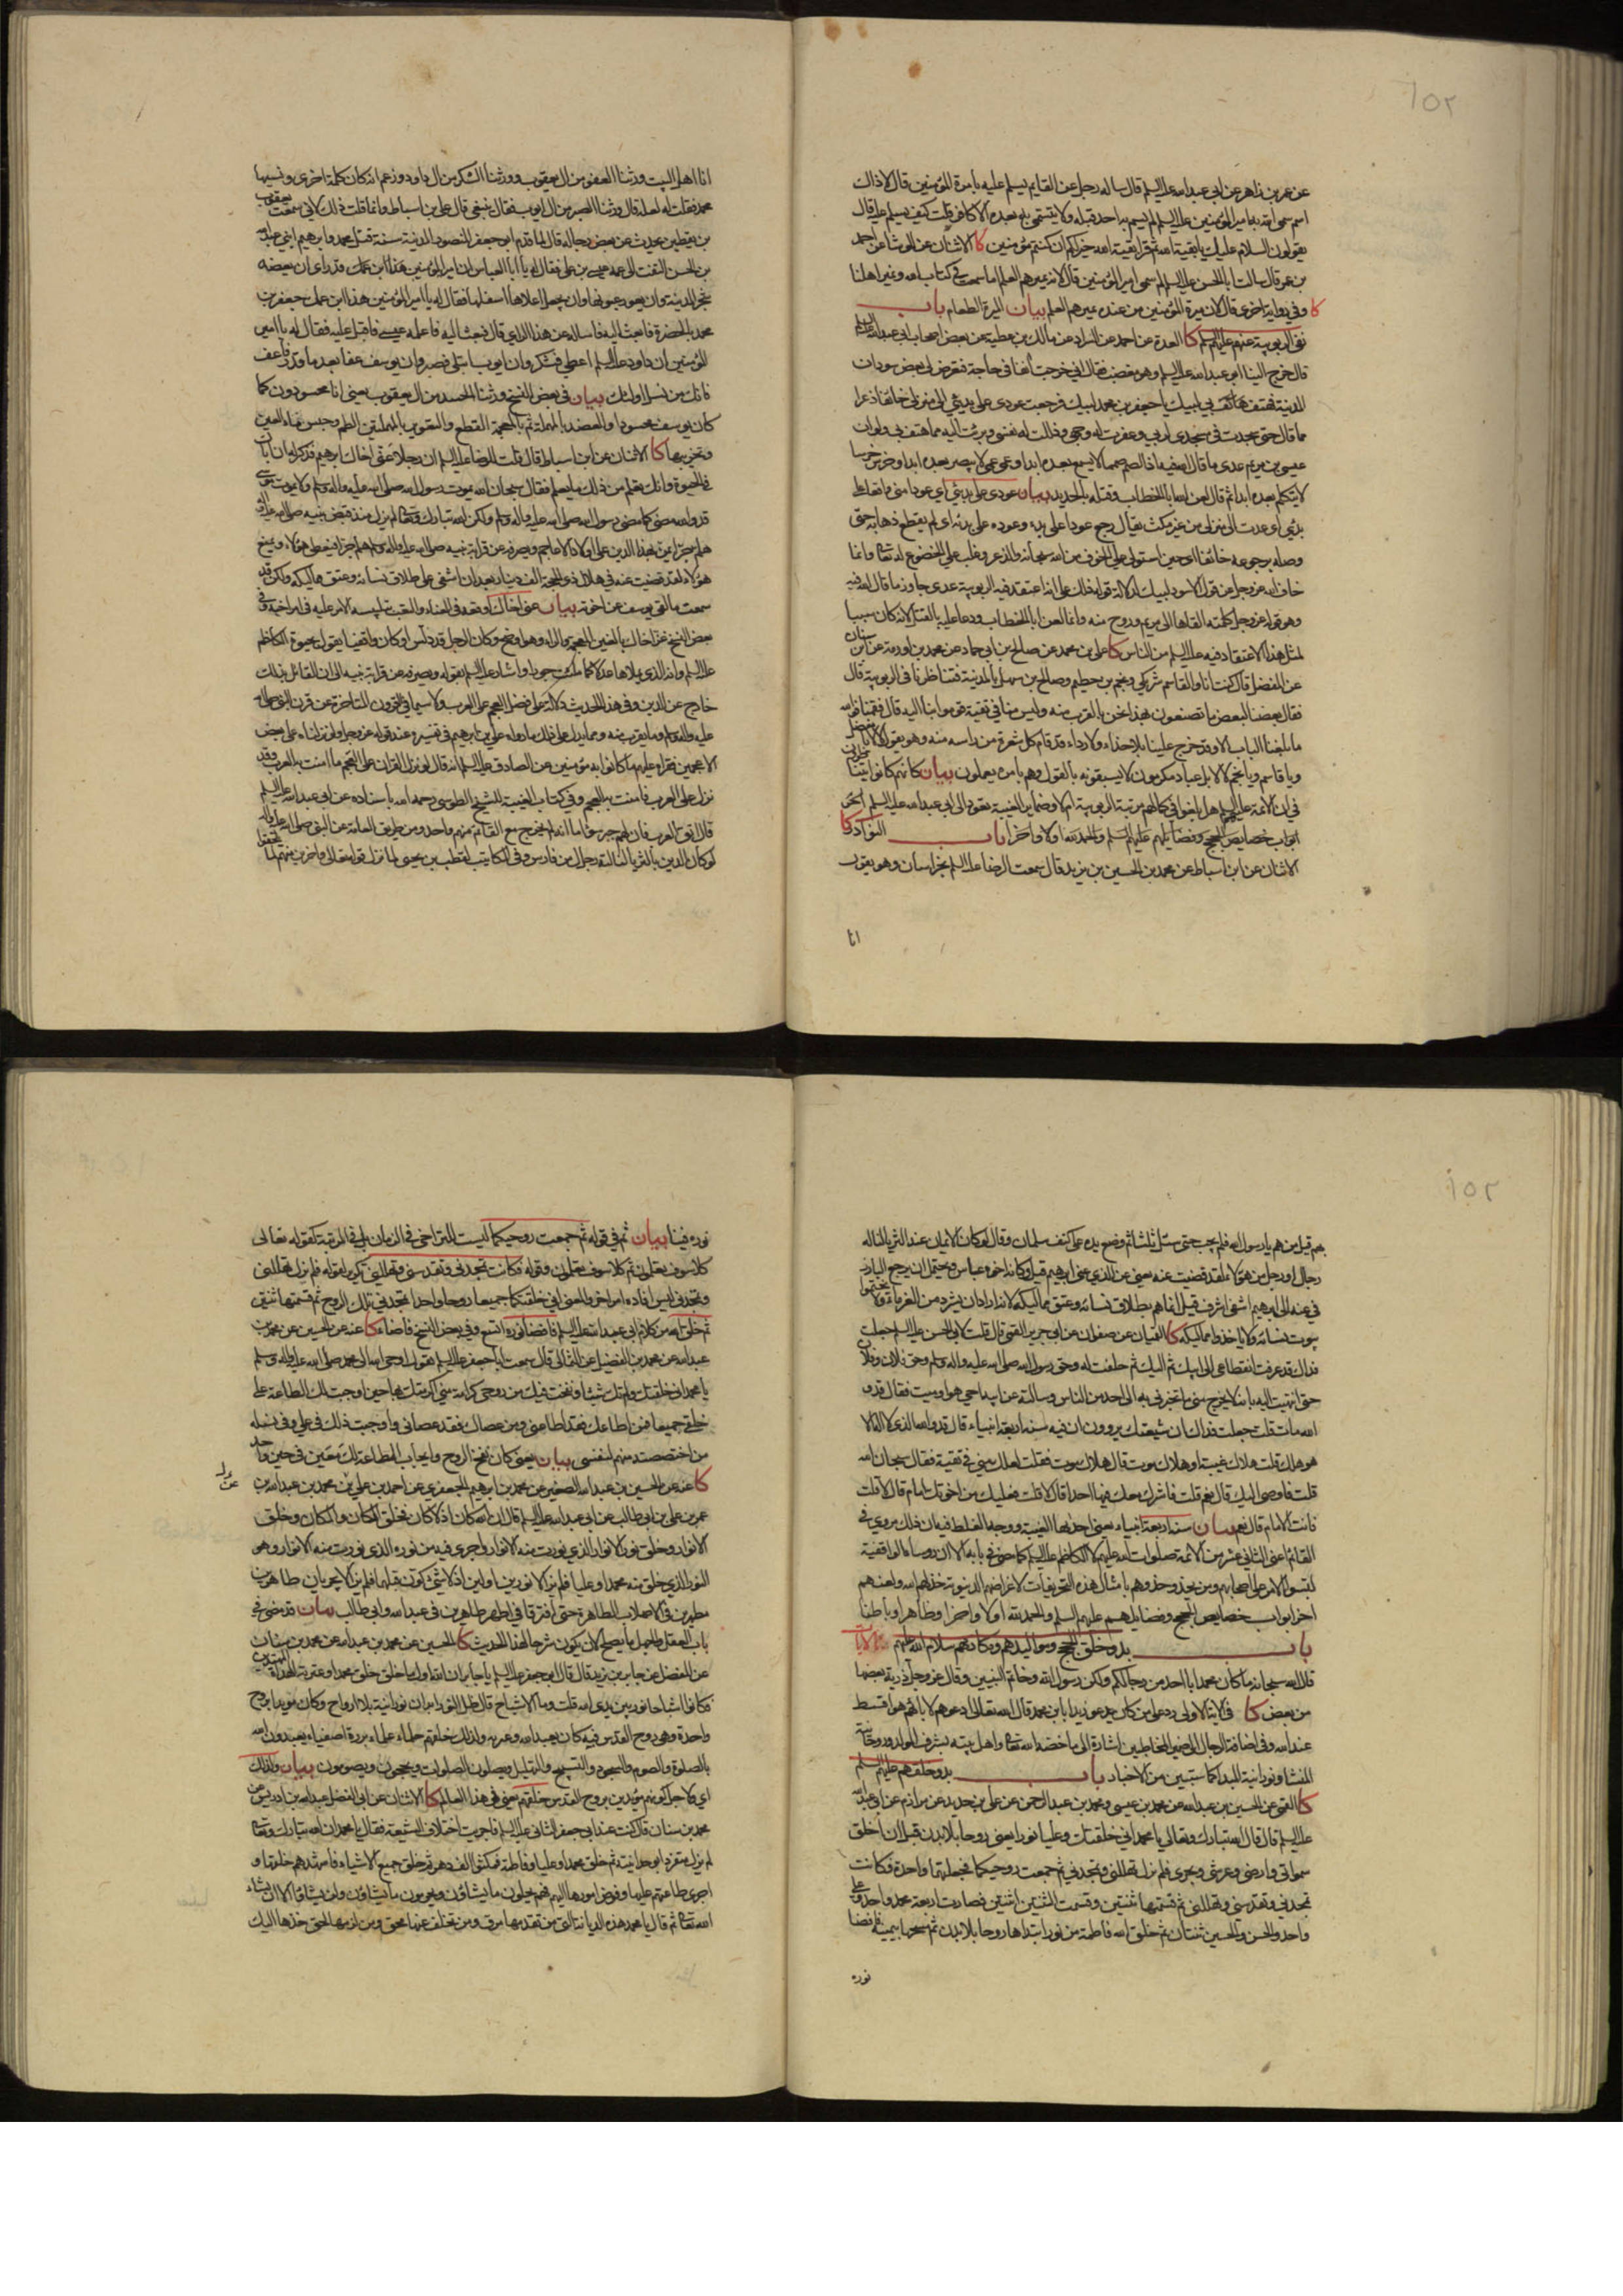 عن عمر بن زاهر عن ابي عبد الله عليه السلم قال ساله رجل عن القايم يسلم عليه بامرة المؤمنين قال لا ذاك
اسم سمى الله به امير المؤمنين عليه السلم لم يسم به احد قبله ولا يتسمى به بعده الا كافر قلت كيف يسلم عليه قال
يقولون السلام عليك يا بقية الله ثم قرا بقية الله خير لكم ان كنتم مؤمنين كا الاثنان عن الوشا عن احمد
بن عمر قال سالت ابا الحسن عليه السلم لم سمى امير المؤمنين قال لانه يميرهم العلم اما سمعت في كتاب الله ونمير اهلنا
كا وفي رواية اخرى قال لان ميرة المؤمنين من عنده يميرهم العلم بيان الميرة الطعام باب
نفى الربوبية عنهم عليهم السلم كا العدة عن احمد عن السراد عن مالك بن عطية عن بعض اصحاب ابي عبد الله عليه السلم
قال خرج الينا ابو عبد الله عليه السلم وهو مغضب فقال اني خرجت آنفا في حاجة فتعرض لي بعض سودان
المدينة فهتف بي لبيك يا جعفر بن محمد لبيك فرجعت عودي على بدئي الى منزلي خائفا ذعرا
مما قال حتى سجدت في مسجدي لربي وعفرت له وجهي وذللت له نفسي وبرئت اليه مما هتف بي ولو ان
عيسى بن مريم عدى ما قال الله فيه اذا لصم صمما لا يسمع بعده ابدا وعمي عمى لا يبصر بعده ابدا وخرس خرسا
لا يتكلم بعده ابدا ثم قال لعن الله ابا الخطاب وقتله بالحديد بيان عودي على بدئي اي عودا مني واقعا على
بدئي اي عدت الى منزلي من غير مكث يقال رجع عودا على بدء وعوده على بدئه اي لم يقطع ذهابه حتى
وصله برجوعه خائفا اي حين استولى علي الخوف من الله سبحانه والذعر وغلب علي الخضوع له تعالى وانما
خاف الله عز وجل عن قول الاسود لبيك لدلالة قوله ذلك على انه اعتقد فيه الربوبية عدى جاوز ما قال الله فيه
وهو قوله عز وجل كلمته القاها الى مريم وروح منه وانما لعن ابا الخطاب ودعا عليه بالقتل لانه كان سببا
لمثل هذا الاعتقاد فيه عليه السلم من الناس كا علي بن محمد عن صالح بن ابي حماد عن محمد بن اورمة عن ابن سنان
عن المفضل قال كنت انا والقاسم شريكي ونجم بن حطيم وصالح بن سهل بالمدينة فتناظرنا في الربوبية قال
فقال بعضنا لبعض ما تصنعون بهذا نحن بالقرب منه وليس منا في تقية قوموا بنا اليه قال فقمنا فوالله
ما بلغنا الباب الا وقد خرج علينا بلا حذاء ولا رداء قد قام كل شعرة من راسه منه وهو يقول لا لا يا مفضل
ويا قاسم ويا نجم لا لا بل عباد مكرمون لا يسبقونه بالقول وهم بامره يعملون بيان كانهم كانوا
في ان الائمة عليهم السلم هل بلغوا في كمالهم مرتبة الربوبية ام لا وضماير الغيبة تعود الى ابي عبد الله عليه السلم آخر
ابواب خصايص الحجج وفضايلهم عليهم السلم والحمد لله اولا واخرا باب النوادر كا
الاثنان عن ابن اسباط عن محمد بن الحسين بن يزيد قال سمعت الرضا عليه السلم بخراسان وهو يقول
انا
انا اهل البيت ورثنا العفو من ال يعقوب وورثنا الشكر من ال داود وزعم انه كان كلمة اخرى ونسيها
محمد فقلت له لعله قال ورثنا الصبر من ال ايوب فقال ينبغي قال علي بن اسباط وانما قلت ذلك لاني سمعت يعقوب
بن يقطين يحدث عن بعض رجاله قال لما قدم ابو جعفر المنصور المدينة سنة قتل محمد وابرهيم ابني عبد الله
بن الحسن التفت الى عمه عيسى بن علي فقال له يا ابا العباس ان امير المؤمنين قد راى ان يعضد
شجر المدينة وان يعور عيونها وان يجعل اعلاها اسفلها فقال له يا امير المؤمنين هذا ابن عمك جعفر بن
محمد بالحضرة فابعث اليه فاساله عن هذا الراي قال فبعث اليه فاعلمه عيسى فاقبل عليه فقال له يا امير
المؤمنين ان داود عليه السلم اعطي فشكر وان ايوب ابتلي فصبر وان يوسف عفا بعد ما قدر فاعف
فانك من نسل اولئك بيان في بعض النسخ ورثنا الحسد من ال يعقوب يعني انا محسودون كما
كان يوسف محسودا والعضد بالمهملة ثم بالمعجمة القطع والتعوير بالمهملتين الطم وحبس ماء العين
ونحن بها كا الاثنان عن ابن اسباط قال قلت للرضا عليه السلم ان رجلا عنى اخاك ابرهيم فذكر له ان اباك
في الحيوة وانك تعلم من ذلك ما يعلم فقال سبحان الله يموت رسول الله صلى الله عليه واله وسلم ولا يموت موسى
قد والله مضى كما مضى رسول الله صلى الله عليه واله وسلم ولكن الله تبارك وتعالى لم يزل منذ قبض نبيه صلى الله عليه واله
هلم جرا يمن بهذا الدين على اولاد الاعاجم ويصرفه عن قرابة نبيه صلى الله عليه واله وسلم هلم جرا فيعطي هؤلاء ويمنع
هؤلاء لقد قضيت عنه في هلال ذي الحجة الف دينار بعد ان اشفى على طلاق نسائه وعتق مماليكه ولكن قد
سمعت ما لقي يوسف من اخوته بيان عنى اخاك اوقعه في العناء والتعب بتلبيسه الامر عليه في امر اخيه وفي
بعض النسخ غر اخاك بالغين المعجمة والراء وهو اوضح وكان الرجل قد دلس او كان واقفيا يقول بحيوة الكاظم
عليه السلم وانه الذي يملاها عدلا كما ملئت جورا واشار عليه السلم بقوله ويصرفه عن قرابة نبيه الى ان القائل بذلك
خارج عن الدين وفي هذا الحديث دلالة على فضل العجم على العرب ولا سيما في القرون المتاخرة عن قرن النبي صلى الله
عليه واله وسلم وما يقرب منه ومما يدل على ذلك ما رواه علي بن ابرهيم في تفسيره عند قوله عز وجل ولو نزلناه على بعض
الاعجمين فقراه عليهم ما كانوا به مؤمنين عن الصادق عليه السلم انه قال لو نزل القران على العجم ما امنت به العرب وقد
نزل على العرب فامنت به العجم وفي كتاب الغيبة للشيخ الطوسي رحمه الله باسناده عن ابي عبد الله عليه السلم
قال اتق العرب فان لهم خبر سوء اما انه لم يخرج مع القائم منهم واحد ومن طريق العامة عن النبي صلى الله عليه واله
لو كان الدين بالثريا لناله رجال من فارس وفي لقطب بن يحيى لما نزل قوله تعالى واخرين منهم لما يلحقوا
بهم قيل من هم يا رسول الله فلم يجب حتى سئل ثلثا ثم وضع يده على كتف سلمان وقال لو كان الايمان عند الثريا لناله
رجال او رجل من هؤلاء لقد قضيت عنه يعني عن الذي عنى ابرهيم قيل وكانه اخوه عباس ويحتمل ان يرجع البارز
في عنه الى ابرهيم اشفى اشرف قيل انما هم بطلاق نسائه وعتق مماليكه لانه اراد ان يشرد من الغرماء
بيوت نسائه ولا ياخذوا مماليكه كا القميان عن صفوان عن ابي جرير القمي قال قلت لابي الحسن عليه السلم جعلت
فداك قد عرفت انقطاعي الى ابيك ثم اليك ثم حلفت له وحق رسول الله صلى الله عليه واله وسلم وحق فلان وفلان
حتى انتهيت اليه بانه لا يخرج مني ما تخبرني به الى احد من الناس وسالته عن ابيه احي هو او ميت فقال قد و
الله مات قلت جعلت فداك ان شيعتك يروون ان فيه سنة اربعة انبياء قال قد والله الذي لا اله الا
هو هلك قلت هلاك غيبة او هلاك موت قال هلاك موت فقلت لعلك مني في تقية فقال سبحان الله
قلت فاوصى اليك قال نعم قلت فاشرك معك فيها احدا قال لا قلت فعليك من اخوتك امام قال لا قلت
فانت الامام قال نعم بيان سنة اربعة انبياء يعني احدها الغيبة ووجه الغلط فيه ان ذلك مروي في
القائم اعني الثاني عشر من الائمة صلوات الله عليهم لا الكاظم عليه السلم كما مضى في بابه الا ان رؤساء الواقفية
لبسوا الامر على اصحابهم ومن يحذو حذوهم بامثال هذه التحريفات لاغراضهم الدنيوية خذلهم الله ولعنهم
اخر ابواب خصايص الحجج وفضايلهم عليهم السلم والحمد لله اولا واخرا وظاهرا وباطنا
باب بدو خلق الحجج ومواليدهم ومكارمهم سلام الله عليهم الآيات
قال الله سبحانه ما كان محمد ابا احد من رجالكم ولكن رسول الله وخاتم النبيين وقال عز وجل ذرية بعضها
من بعض كا في الاية الاولى رد على من كان يدعو زيدا بابن محمد قال الله تعالى ادعوهم لابائهم هو اقسط
عند الله وفي اضافة الرجال الى ضمير المخاطبين اشارة الى ما خصه الله تعالى واهل بيته بشرف المولد وروحانية
المنشا ونورانية المبدا كما ستبين من الاخبار باب بدو خلقهم عليهم السلم
كا القمي عن الحسين بن عبد الله عن محمد بن عيسى ومحمد بن عبد الرحمن عن علي بن حديد عن مرازم عن ابي عبد الله
عليه السلم قال قال الله تبارك وتعالى يا محمد اني خلقتك وعليا نورا يعني روحا بلا بدن قبل ان اخلق
سمواتي وارضي وعرشي وبحري فلم تزل تهللني وتمجدني ثم جمعت روحيكما فجعلتهما واحدة فكانت
تمجدني وتقدسني وتهللني ثم قسمتها ثنتين وقسمت الثنتين اثنتين فصارت اربعة محمد واحد وعلي
واحد والحسن والحسين ثنتان ثم خلق الله فاطمة من نور ابتداها روحا بلا بدن ثم مسحنا بيمينه فافضا
نوره
نوره فينا بيان ثم في قوله ثم جمعت روحيكما ليست للتراخي في الزمان بل في المرتبة كقوله تعالى
كلا سوف يعلمون ثم كلا سوف تعلمون وقوله فكانت تمجدني وتقدسني وتهللني تكرير لقوله فلم تزل تهللني
وتمجدني ليس افادة امر اخر والمعنى اني خلقتكما جميعا روحا واحدا تمجدني تلك الروح ثم قسمتها ثنتين
ثم خلق الله من كلام ابي عبد الله عليه السلم فافضا نوره اتسع وفي بعض النسخ فاضاء كا عنه عن الحسين عن محمد بن
عبد الله عن محمد بن الفضيل عن الثمالي قال سمعت ابا جعفر عليه السلم يقول اوحى الله الى محمد صلى الله عليه واله وسلم
يا محمد اني خلقتك ولم تك شيئا ونفخت فيك من روحي كرامة مني اكرمتك بها حين اوجبت لك الطاعة على
خلقي جميعا فمن اطاعك فقد اطاعني ومن عصاك فقد عصاني واوجبت ذلك في علي وفي نسله
من اختصصته منهم لنفسي بيان يعني كان نفخ الروح وايجاب الطاعة لك معين في حين واحد
كا عنه عن الحسين بن عبد الله الصغير عن محمد بن ابرهيم الجعفري عن احمد بن علي بن محمد بن عبد الله بن
عمر بن علي بن ابي طالب عن ابي عبد الله عليه السلم قال ان الله كان اذ لا كان فخلق الكان والمكان وخلق
الانوار وخلق نور الانوار الذي نورت منه الانوار واجرى فيه من نوره الذي نورت منه الانوار وهو
النور الذي خلق منه محمدا وعليا فلم يزالا نورين اولين اذ لا شيء كون قبلهما فلم يزالا يجريان طاهرين
مطهرين في الاصلاب الطاهرة حتى افترقا في اطهر طاهرين في عبد الله وابي طالب بيان قد مضى في
باب العقل والجهل ما يصلح لان يكون شرحا لهذا الحديث كا الحسين عن محمد بن عبد الله عن محمد بن سنان
عن المفضل عن جابر بن يزيد قال قال لي ابو جعفر عليه السلم يا جابر ان الله اول ما خلق خلق محمدا وعترته الهداة المهتدين
فكانوا اشباح نور بين يدي الله قلت وما الاشباح قال ظل النور ابدان نورانية بلا ارواح وكان مؤيدا بروح
واحدة وهي روح القدس فبه كان يعبد الله وعترته ولذلك خلقهم حلماء علماء بررة اصفياء يعبدون الله
بالصلوة والصوم والسجود والتسبيح والتهليل ويصلون الصلوات ويحجون ويصومون بيان ولذلك
اي لاجل كونهم مؤيدين بروح القدس خلقهم يعني في هذا العالم كا الاثنان عن ابي الفضل عبد الله بن ادريس عن
محمد بن سنان قال كنت عند ابي جعفر الثاني عليه السلم فاجريت اختلاف الشيعة فقال يا محمد ان الله تبارك وتعالى
لم يزل متفردا بوحدانيته ثم خلق محمدا وعليا وفاطمة فمكثوا الف دهر ثم خلق جميع الاشياء فاشهدهم خلقها و
اجرى طاعتهم عليها وفوض امورها اليهم فهم يحلون ما يشاؤن ويحرمون ما يشاؤن ولن يشاؤا الا ان يشاء
الله تعالى ثم قال يا محمد هذه الديانة التي من تقدمها مرق ومن تخلف عنها محق ومن لزمها لحق خذها اليك